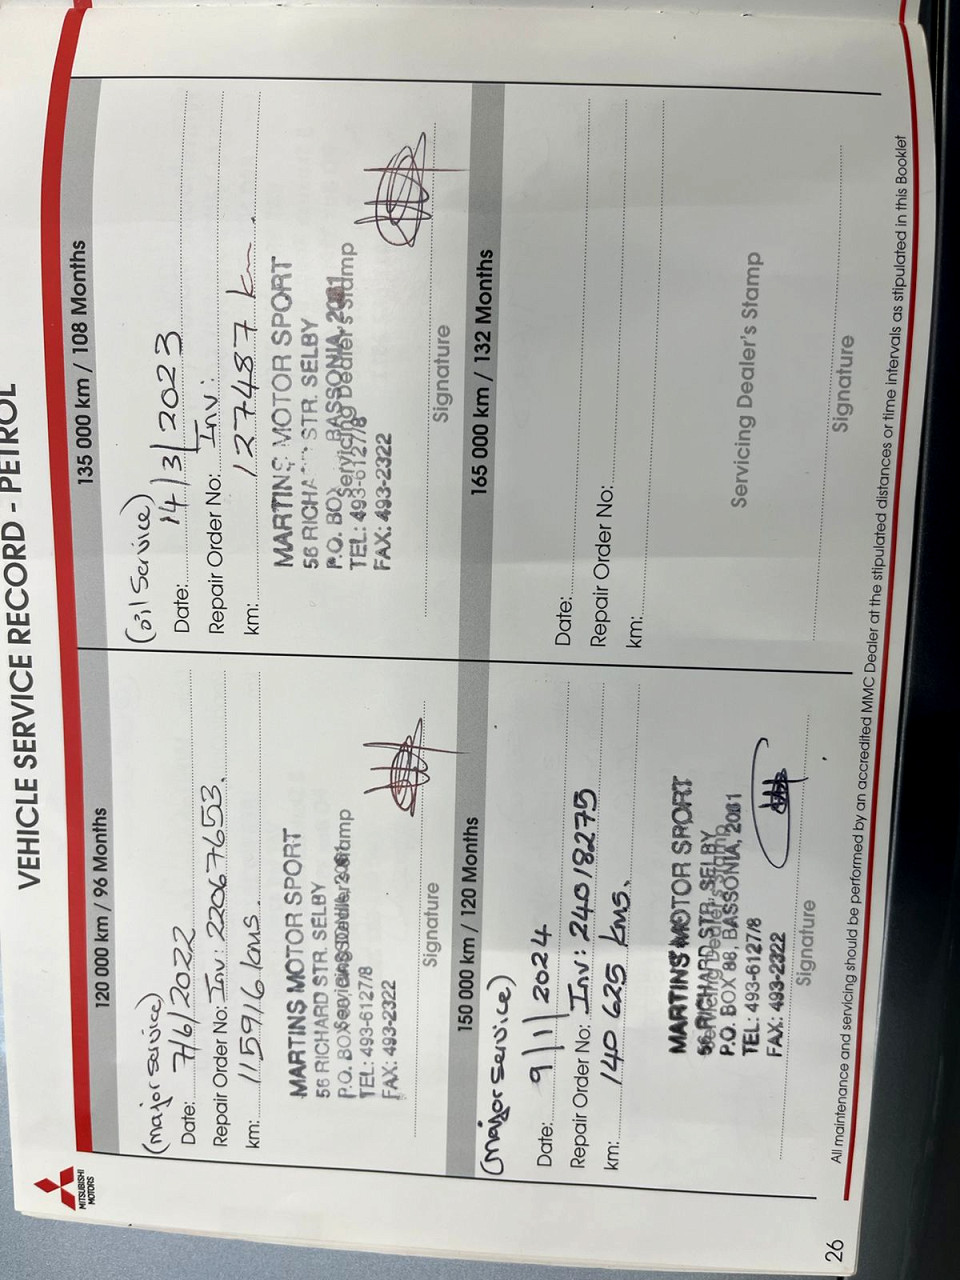 VEHICLE SERVICE RECORD - PETROL
MITSUBISHI
MOTORS
120 000 km / 96 Months
(major service)
Date: 7/6/2022
Repair Order No: Inv: 22067653.
km: 115916 kms.
MARTINS MOTOR SPORT
56 RICHARD STR. SELBY
P.O. BOX
Servicing Dealer's Stamp
TEL: 493-6127/8
FAX: 493-2322
Signature
135 000 km / 108 Months
(oil service)
Date: 14/3/2023
Repair Order No: Inv:
km: 127487 km.
MARTINS MOTOR SPORT
56 RICHARD STR. SELBY
P.O. BOX BASSONIA, 2061
Servicing Dealer's Stamp
TEL: 493-6127/8
FAX: 493-2322
Signature
150 000 km / 120 Months
(major service)
Date: 9/1/2024
Repair Order No: Inv: 24018275
km: 140 625 kms.
MARTINS MOTOR SPORT
56 RICHARD STR. SELBY
Servicing Dealer's Stamp
P.O. BOX 88, BASSONIA, 2061
TEL: 493-6127/8
FAX: 493-2322
Signature
165 000 km / 132 Months
Date:
Repair Order No:
km:
Servicing Dealer's Stamp
Signature
All maintenance and servicing should be performed by an accredited MMC Dealer at the stipulated distances or time intervals as stipulated in this Booklet
26